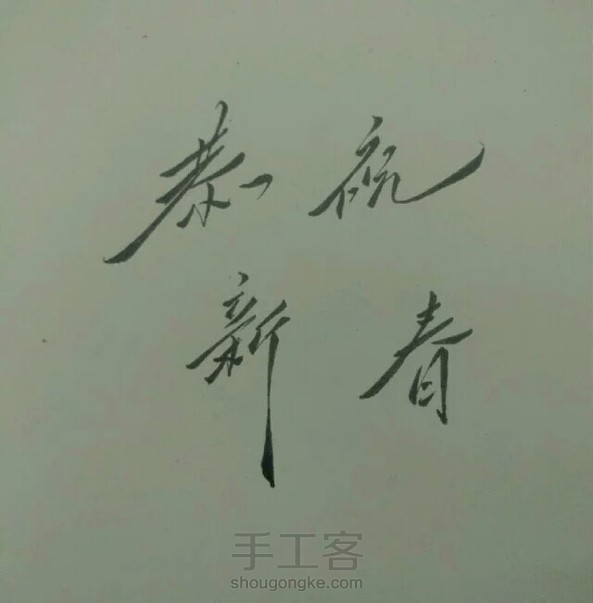 恭祝
新春
手工客
shougongke.com